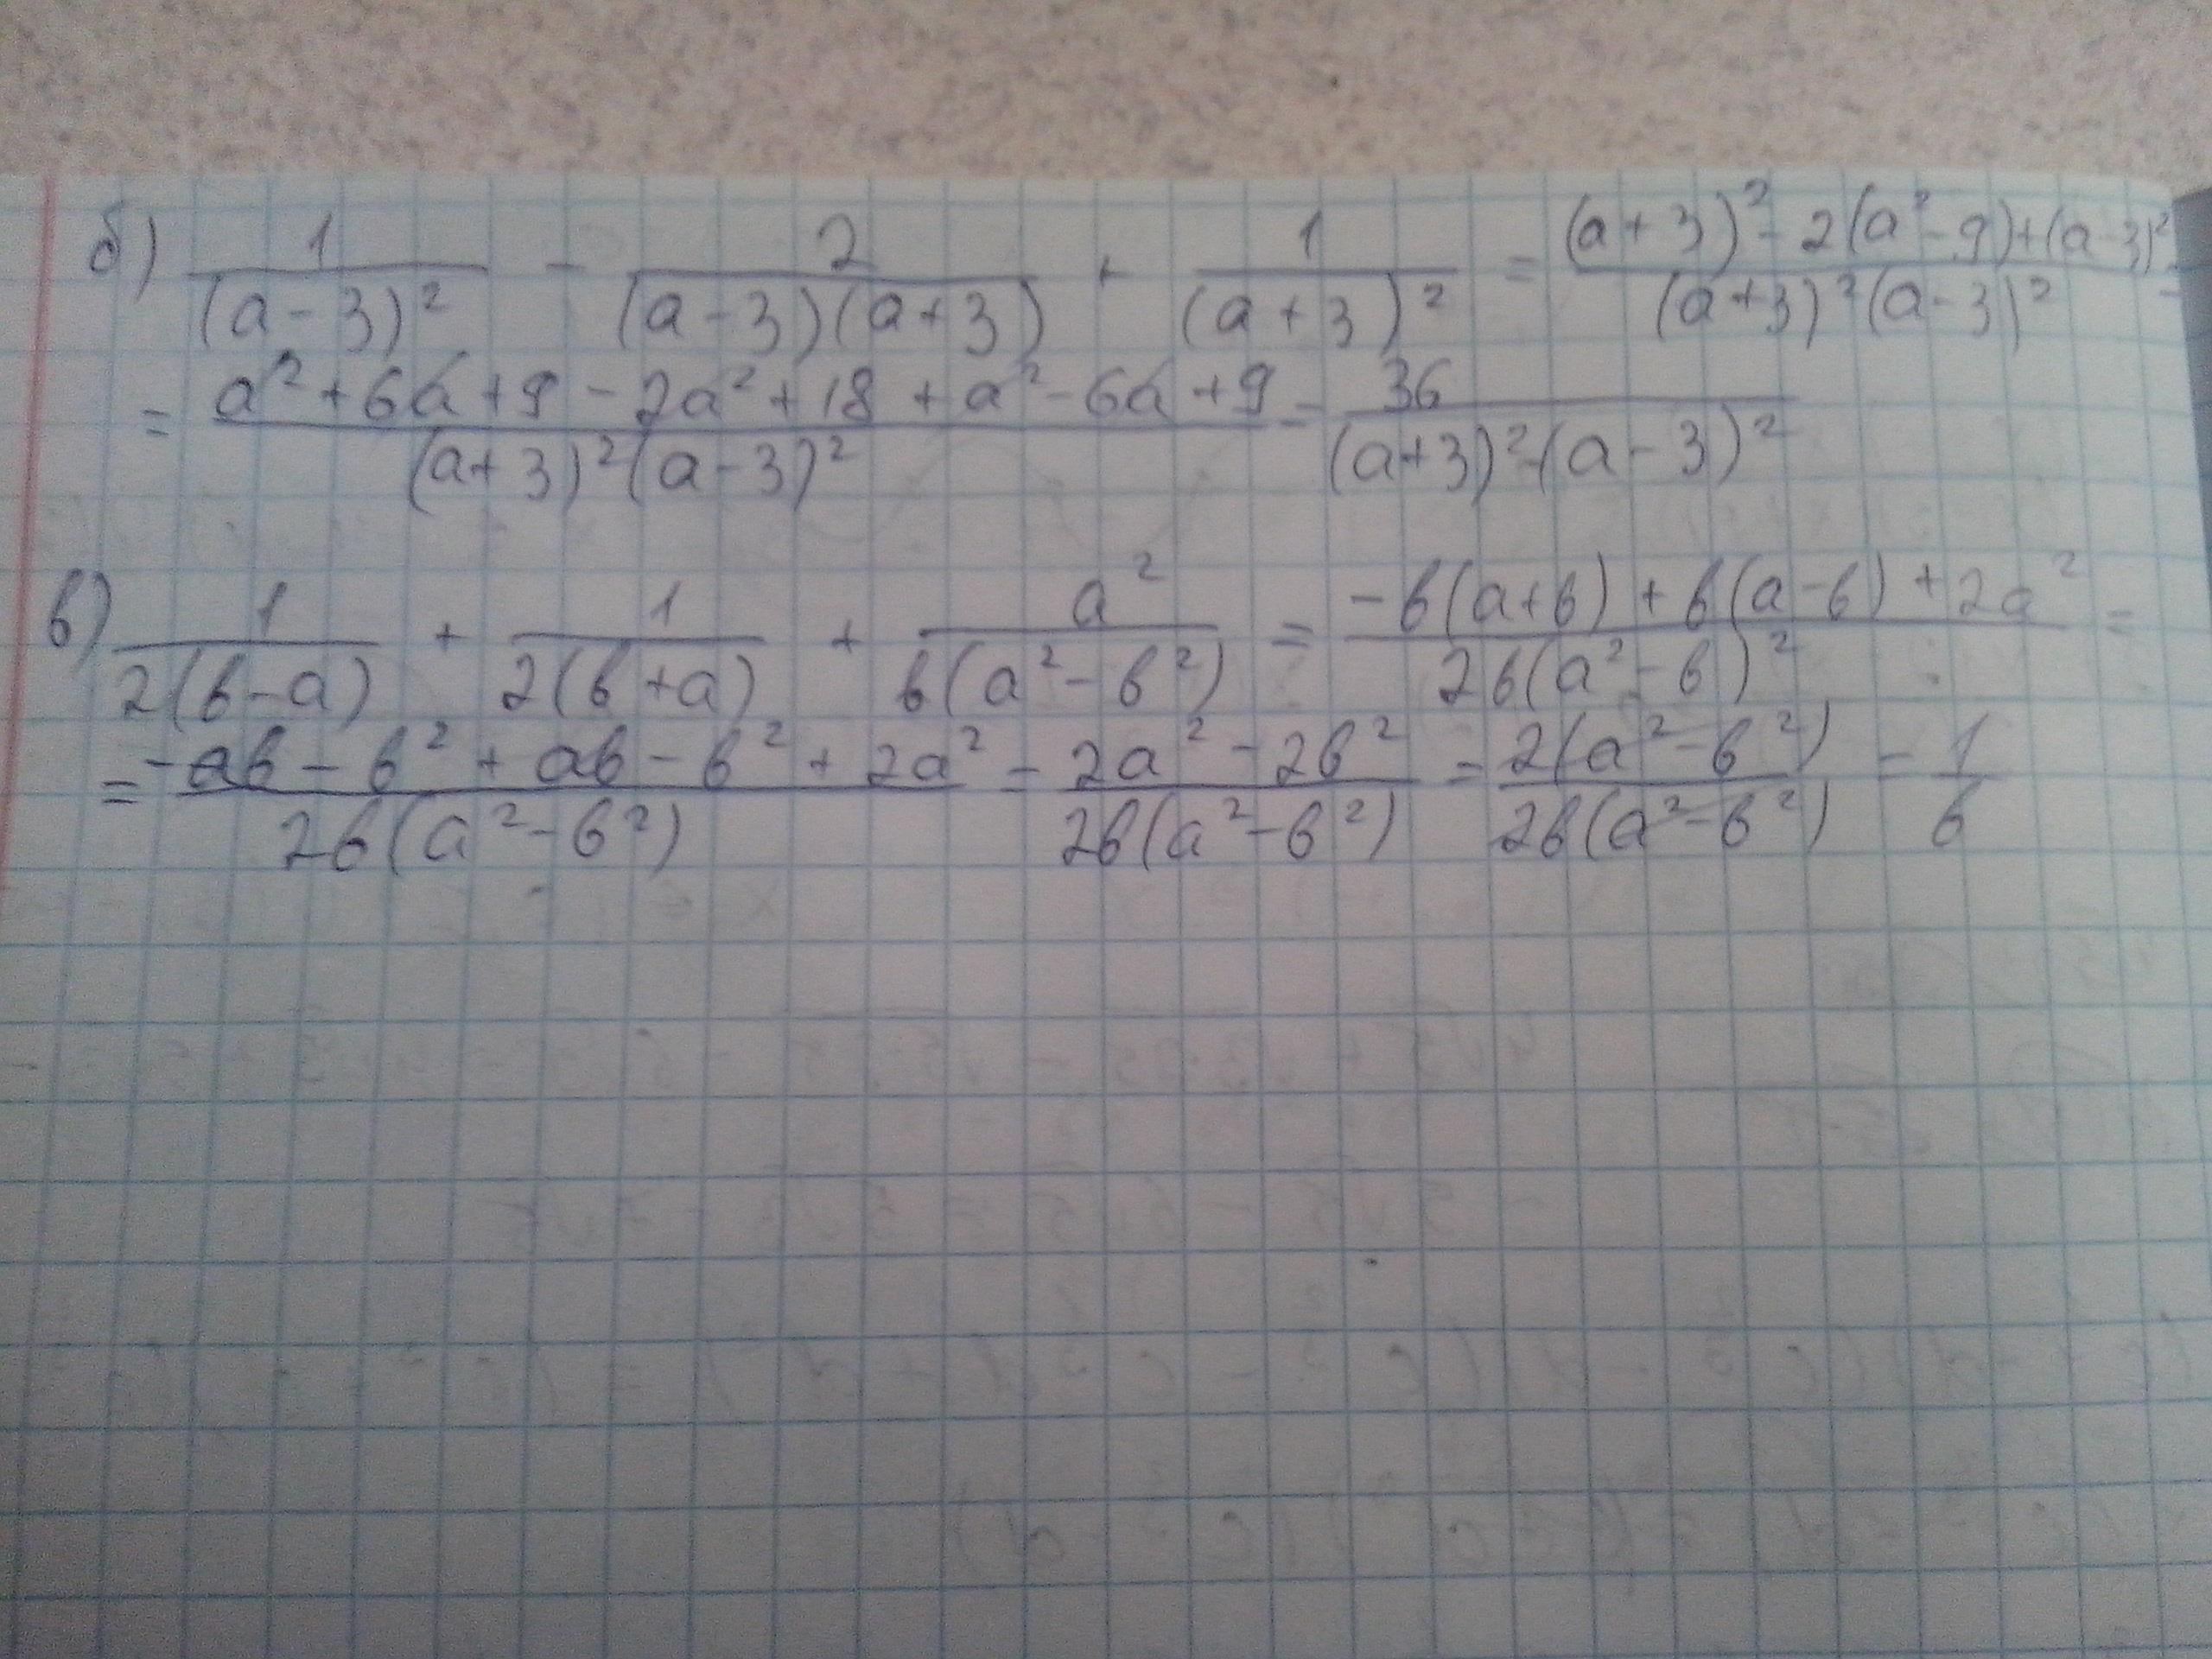 б) 1/(a-3)² - 2/((a-3)(a+3)) + 1/(a+3)² = ((a+3)² - 2(a²-9)+(a-3)²)/((a+3)²(a-3)²) =
= (a²+6a+9-2a²+18+a²-6a+9)/((a+3)²(a-3)²) = 36/((a+3)²·(a-3)²)
в) 1/(2(в-a)) + 1/(2(в+a)) + a²/(в(a²-в²)) = (-в(a+в)+в(a-в)+2a²)/(2в(a²-в)²) =
= (-aв-в²+aв-в²+2a²)/(2в(a²-в²)) = (2a²-2в²)/(2в(a²-в²)) = 2(a²-в²)/(2в(a²-в²)) = 1/в